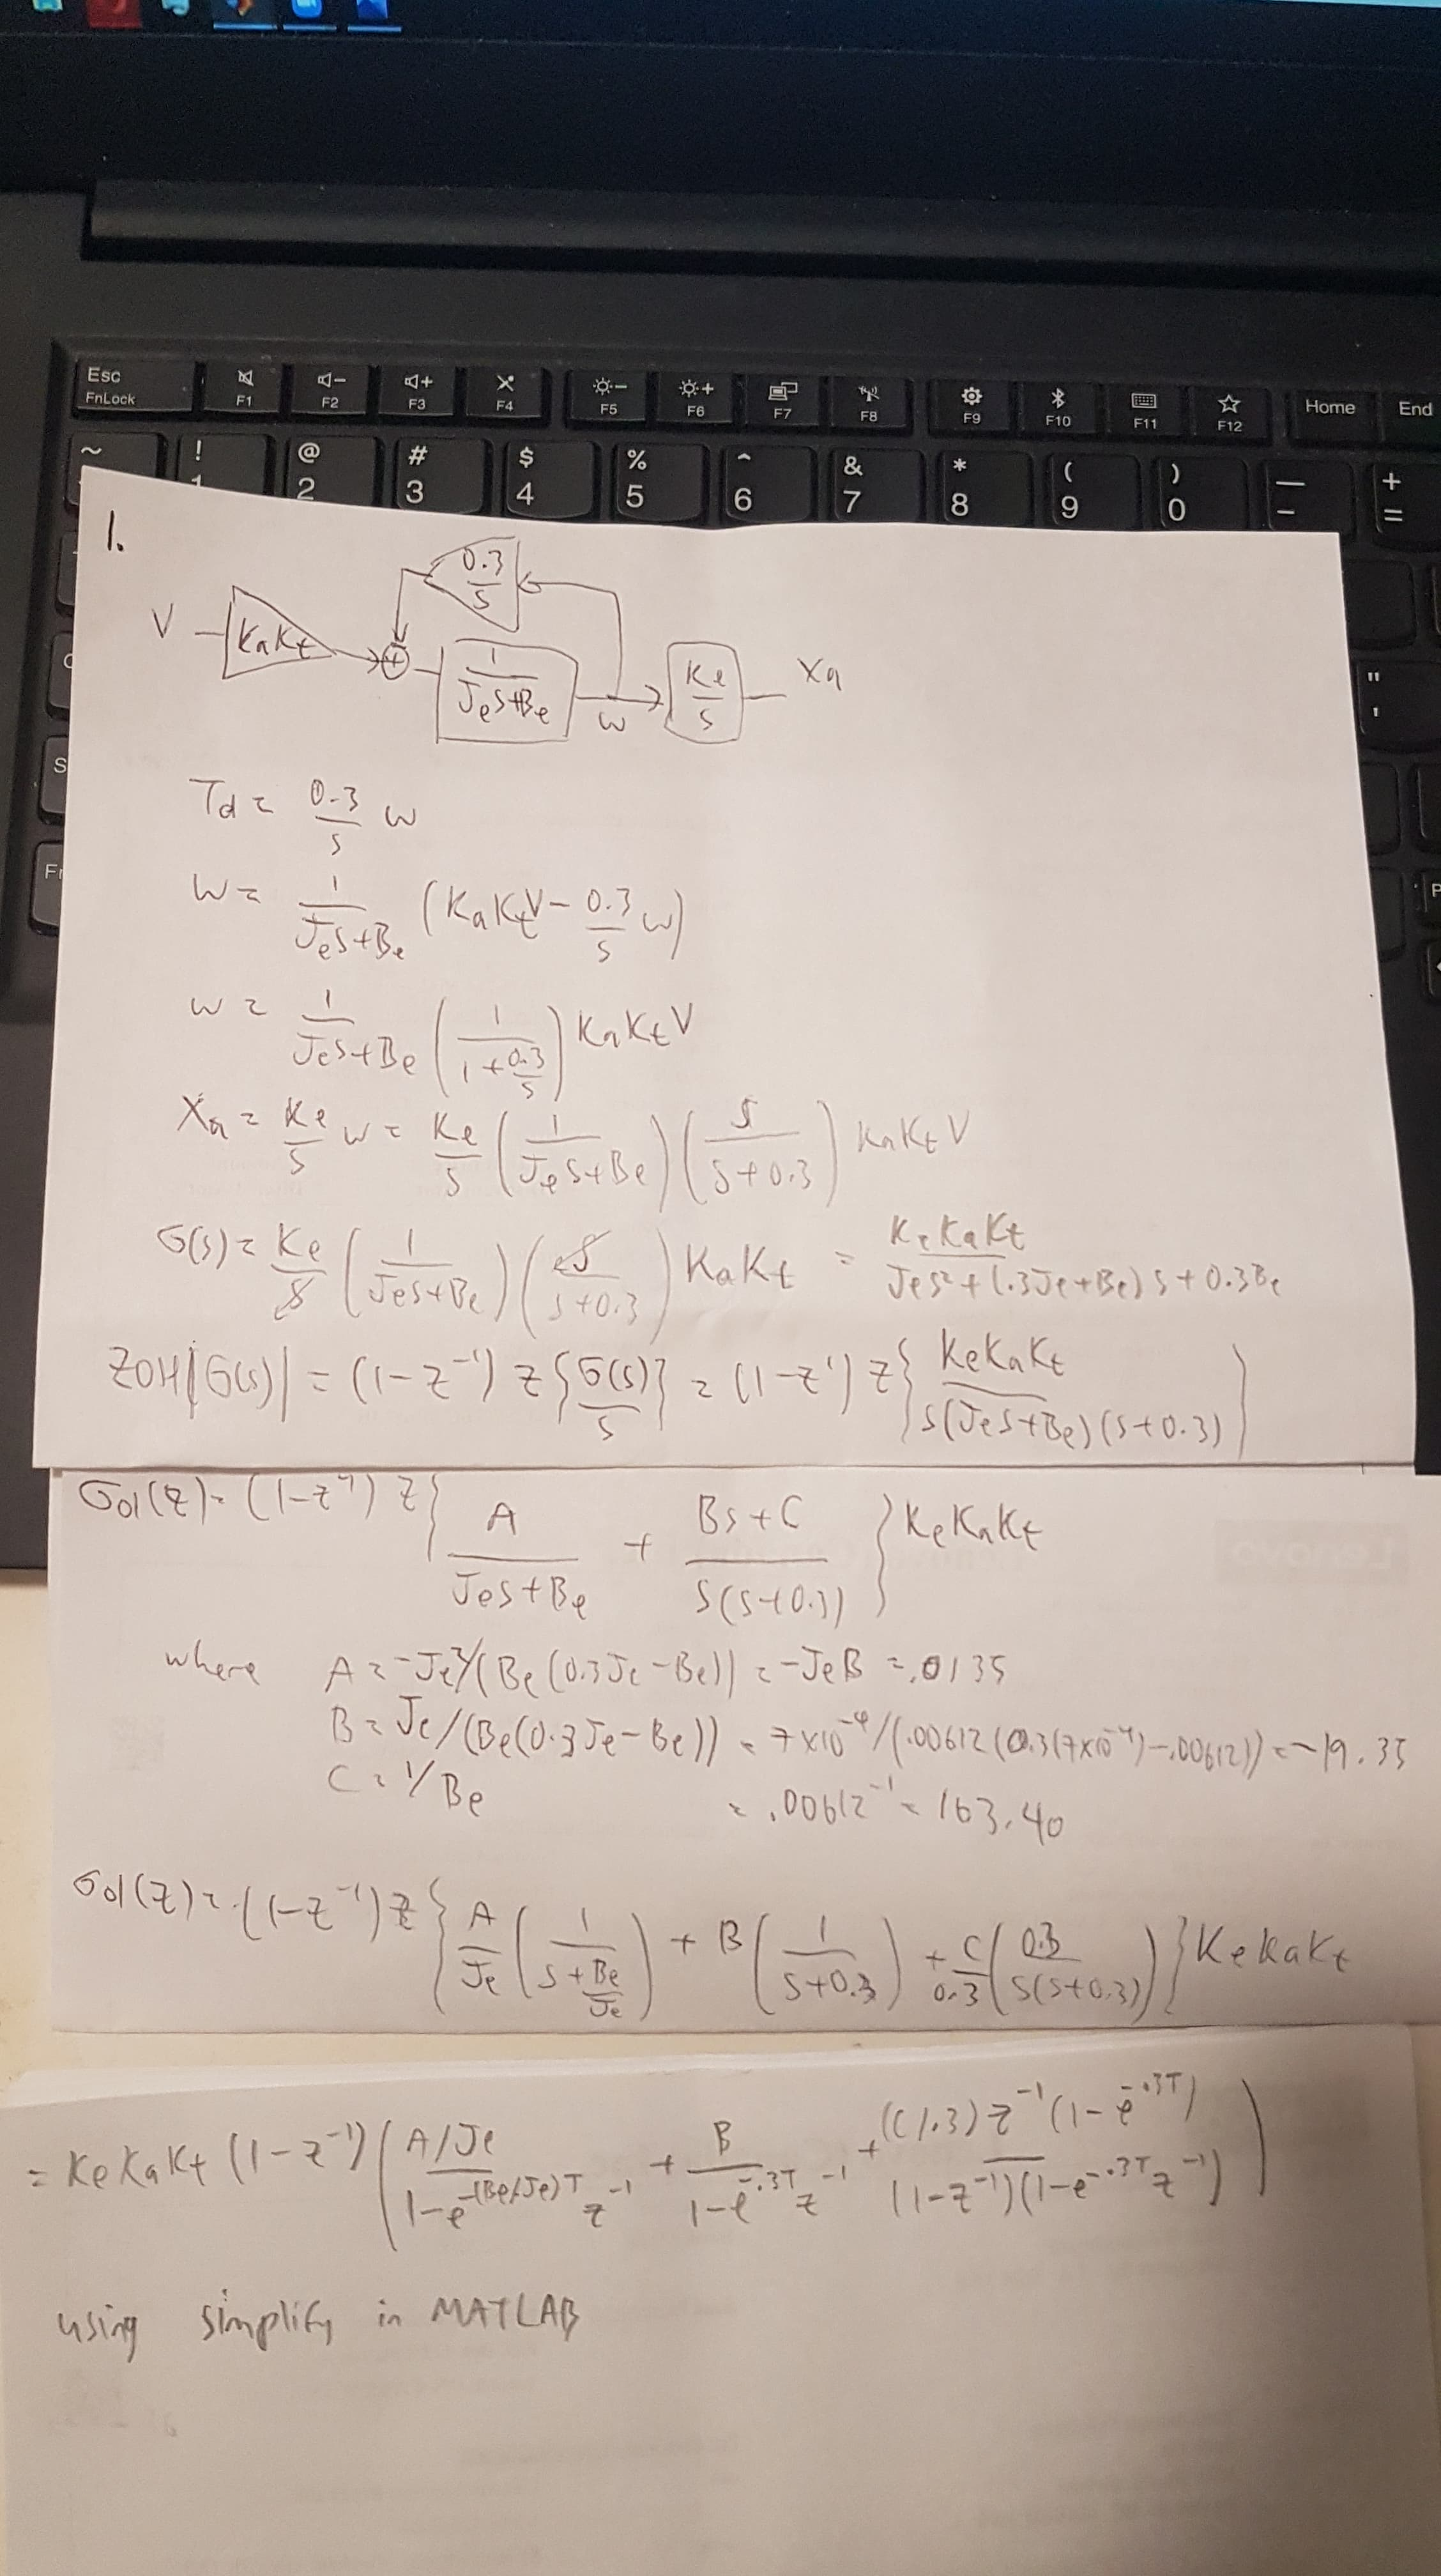 Esc
FnLock
F1
F2
F3
F4
F5
F6
F7
F8
F9
F10
F11
F12
Home
End
~
! 1
@ 2
# 3
$ 4
% 5
^ 6
& 7
* 8
( 9
) 0
_ -
+ =
" '
S
1.
0.3/s
V KaKt + 1/(Jes+Be) w Ke/s Xa
Td = 0.3/s w
w = 1/(Jes+Be) (KaKtV - 0.3/s w)
w = 1/(Jes+Be) (1/(1+0.3/s)) KaKtV
Xa = Ke/s w = Ke/s (1/(Jes+Be)) (s/(s+0.3)) KaKtV
G(s) = Ke/s (1/(Jes+Be)) (s/(s+0.3)) KaKt = KeKaKt/(Jes²+(.3Je+Be)s+0.3Be)
ZOH|G(s)| = (1-z⁻¹) Z{G(s)/s} = (1-z⁻¹) Z{KeKaKt/(s(Jes+Be)(s+0.3))}
Gol(z) = (1-z⁻¹) Z{A/(Jes+Be) + (Bs+C)/(s(s+0.3))} KeKaKt
where A = -Je²/(Be(0.3Je-Be)) = -JeB = .0135
B = Je/(Be(0.3Je-Be)) = 7x10⁻⁴/(.00612(0.3(7x10⁻⁴)-.00612)) = -19.35
C = 1/Be = .00612⁻¹ = 163.40
Gol(z) = (1-z⁻¹) Z{A/Je (1/(s+Be/Je)) + B(1/(s+0.3)) + C/0.3 (0.3/(s(s+0.3)))} KeKaKt
= KeKaKt (1-z⁻¹) ((A/Je)/(1-e^(-(Be/Je)T) z⁻¹) + B/(1-e^(-.3T) z⁻¹) + (C/.3)z⁻¹(1-e^(-.3T))/((1-z⁻¹)(1-e^(-.3T) z⁻¹)))
using simplify in MATLAB